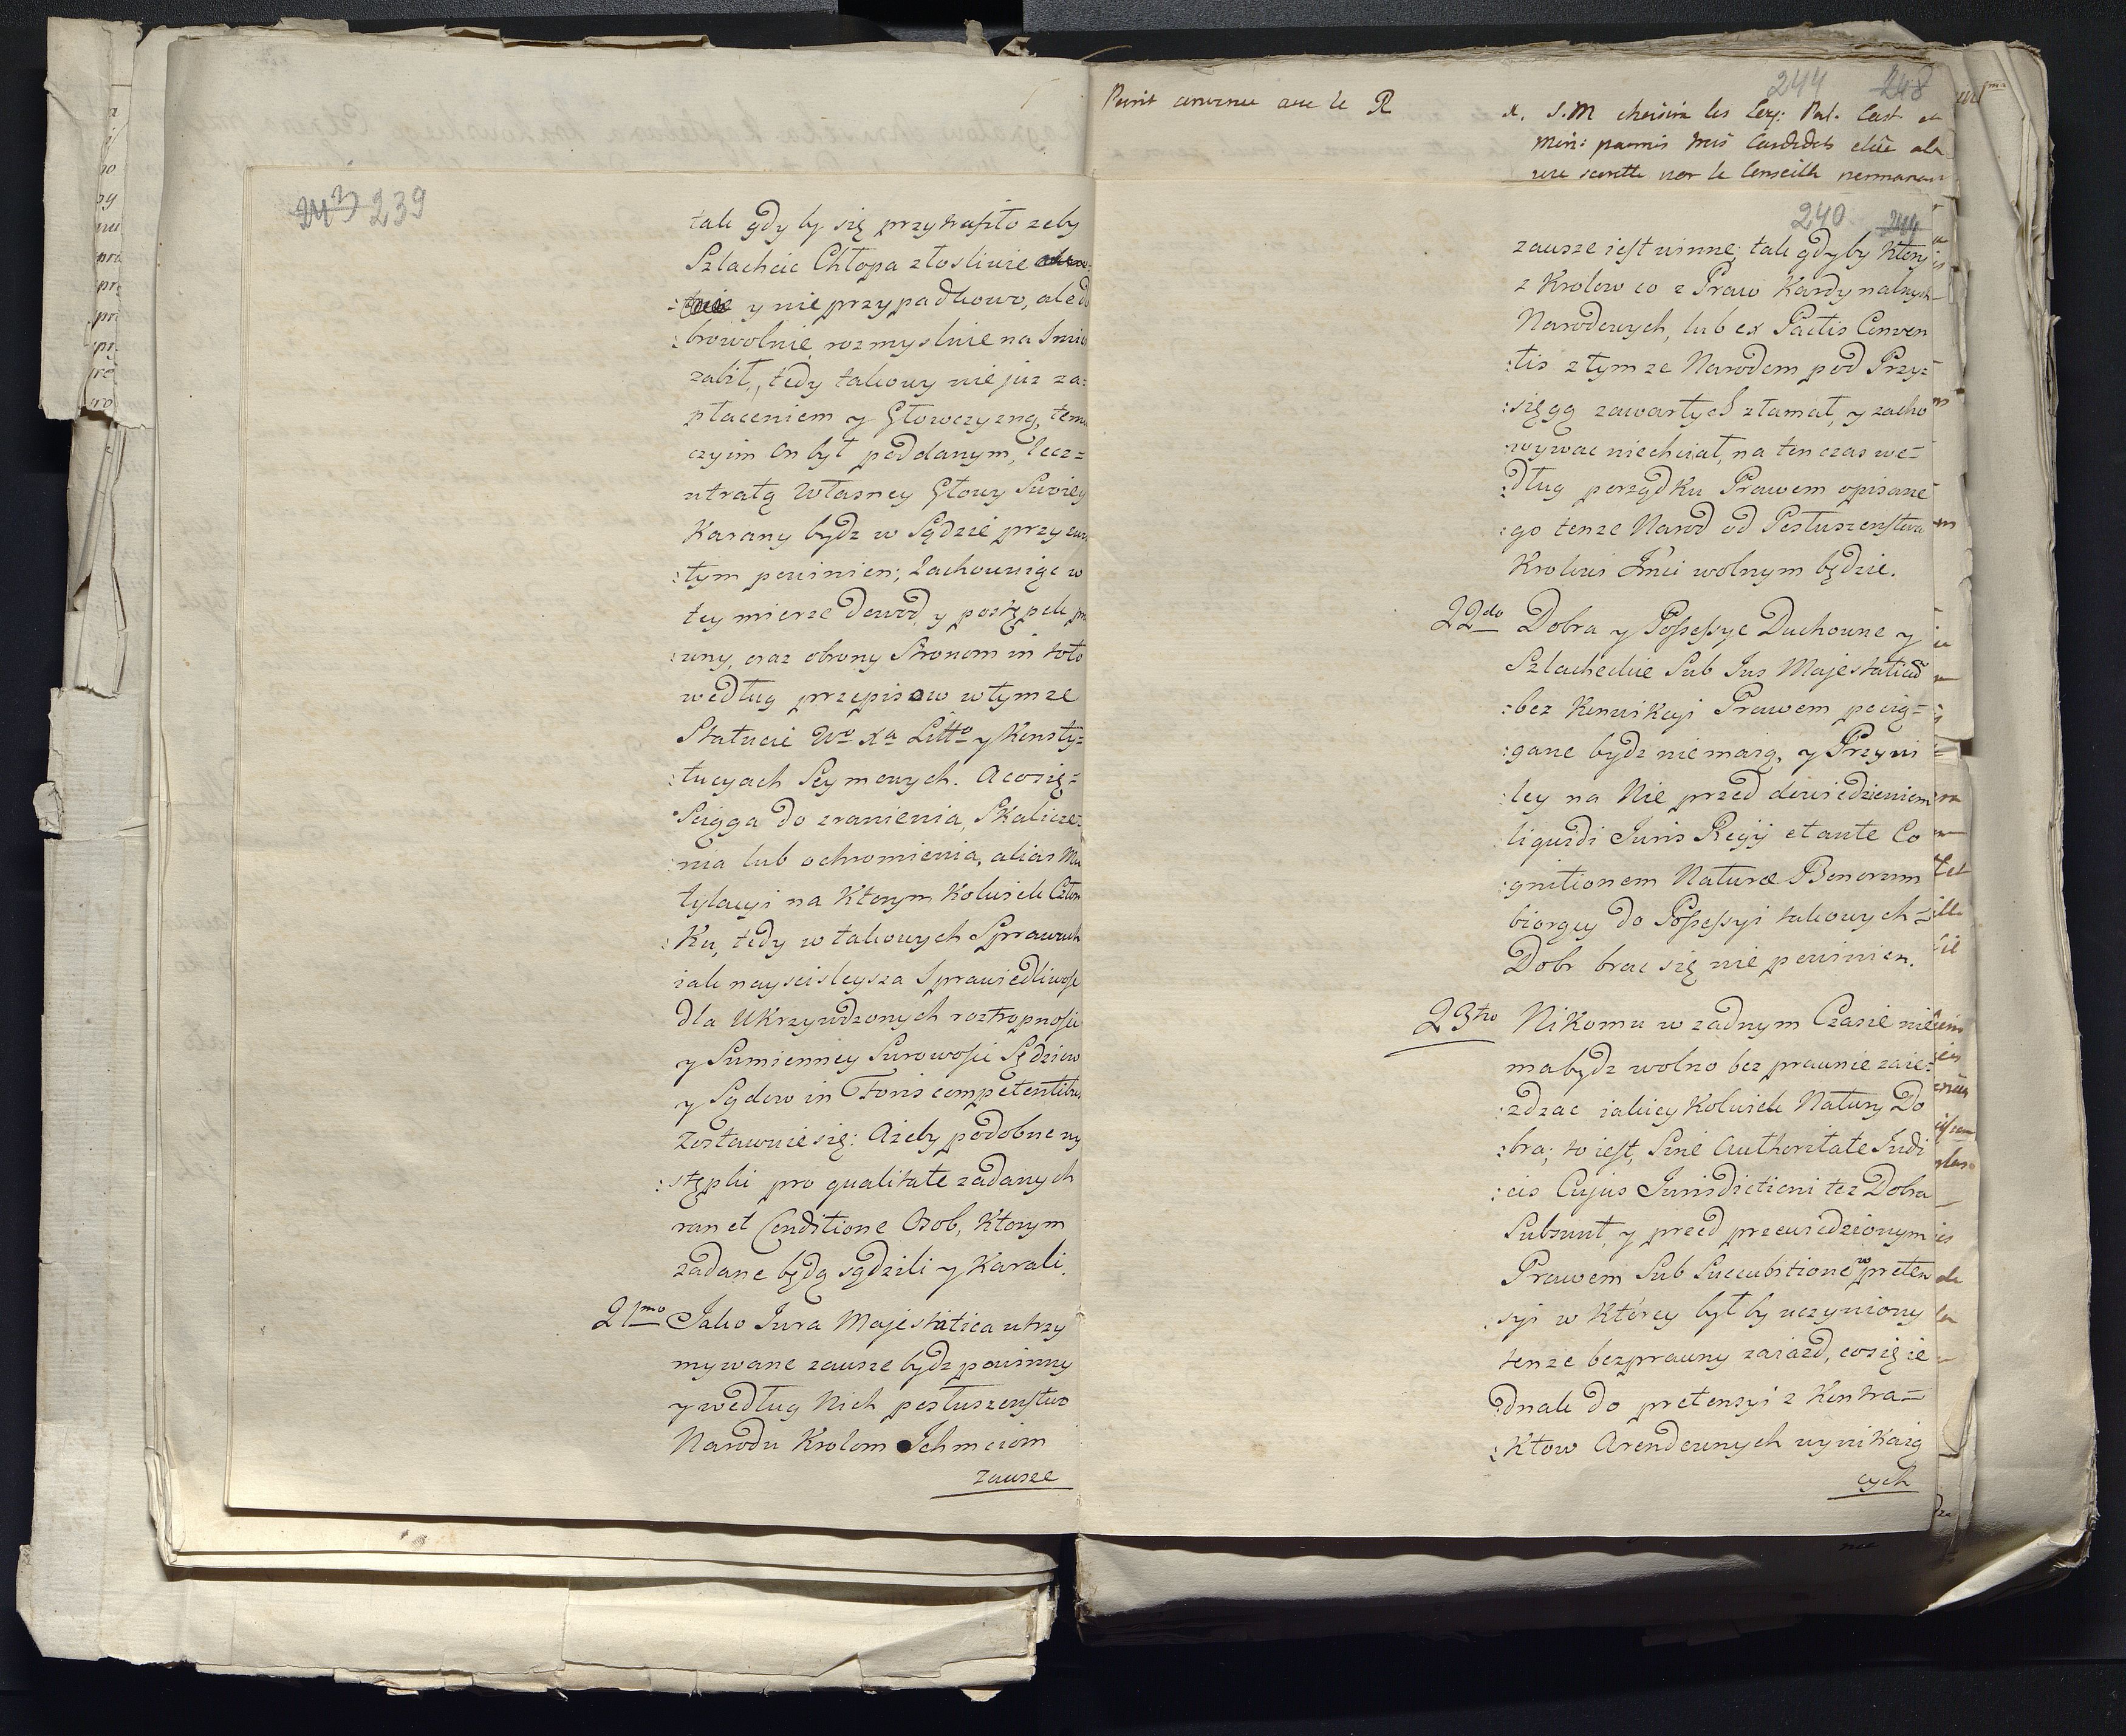 239
tak gdy by się przytrafiło zeby
Szlachcic Chłopa złosliwie
y nie przypadkowo, ale do
:browolnie rozmyslnie na smie
zabił, tedy takowy nie juz za:
płaceniem y Głowczyzną, temu
czyim on był poddanym, lecz=
utratą własney Głowy Swoiey
Karany bydz w Sądzie przyzwo
:tym powinien; Zachowuiąc w
tey mierze dowod, y postępek pra
:wny, oraz obrony Stronom in toto
według przepisow w tymze
Statucie Wo Xa Litto y Konsty=
:tucyach Seymowych. A co się=
:Sciąga do zranienia, Skalicze:
:nia lub ochromienia, alias Mu
tylacyi na Ktorym Kolwiek Człon
:Ku, tedy w takowych Sprawach
iak nayscisleysza Sprawiedliwość
dla Ukrzywdzonych roztropnosci
y Sumienney Surowosci Sędziow
y Sądow in Foris competentibus
Zostawuie się: Ażeby podobne wy
:stępki pro qualitate zadanych
ran et Conditione Osob, Ktorym
zadane będą sądzili y Karali.
21mo Jako Jura Majestatica utrzy
mywane zawsze bydz powinny
y według Nich posłuszenstwo
Narodu Krolom Ichmciom
zawsze
Point convenu avec le R
244 248
x. S.M choisira les Seig: Pal. Cast. et
Min: parmis trois Candidats elûs a la
240 244
zawsze iest winne; tak gdyby Ktory
z Krolow co z Praw Kardynalnych
Narodowych, lub ex Pactis Conven
:tis z tymze Narodem pod Przy=
:sięgą zawartych złamał, y zacho
:wywac niechciał, na ten czas we=
:dług porządku Prawem opisane
:go tenze Narod od Posłuszenstwa
Krolowi Jmci wolnym będzie.
22do Dobra y Possessye Duchowne y
Szlacheckie Sub Jus Majestaticũ
:bez Konwikcyi Prawem pocią=
:gane bydz niemaią, y Przywi
:ley na Nie przed dowiedzieniem
liquidi Juris Regij et ante Co
:gnitionem Naturæ Bonorum
biorący do Possessyi takowych
Dobr brac się nie powinien.
23tio Nikomu w zadnym Czasie nie
ma bydz wolno bez prawnie zaie=
:zdzac iakiey Kolwiek Natury Do
:bra; to iest, Sine Authoritate Judi
:cis Cujus Jurisdictioni tez Dobra
Subsunt, y przed przewiedzionym
Prawem Sub Succubitione w preten
:syi w Ktorey był by uczyniony
tenze bezprawny zaiazd, co się ie
:dnak do pretensyi z Kontra=
:Ktow Arendownych wynikaią
cych